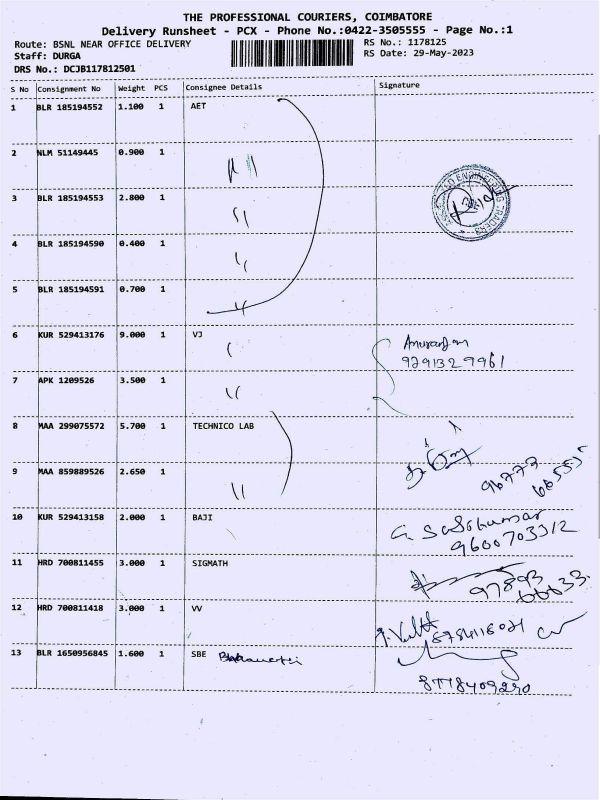 THE PROFESSIONAL COURIERS, COIMBATORE
Delivery Runsheet - PCX - Phone No.:0422-3505555 - Page No.:1
Route: BSNL NEAR OFFICE DELIVERY RS No.: 1178125
Staff: DURGA RS Date: 29-May-2023
DRS No.: DCJB117812501
S No Consignment No Weight PCS Consignee Details Signature
1 BLR 185194552 1.100 1 AET
2 NLM 51149445 0.900 1 "
3 BLR 185194553 2.800 1 "
4 BLR 185194590 0.400 1 "
5 BLR 185194591 0.700 1 "
ENGINEERING TRADERS
6 KUR 529413176 9.000 1 VJ
9291329961
7 APK 1209526 3.500 1 "
8 MAA 299075572 5.700 1 TECHNICO LAB
9 MAA 859889526 2.650 1 "
10 KUR 529413158 2.000 1 BAJI
9600703312
11 HRD 700811455 3.000 1 SIGMATH
12 HRD 700811418 3.000 1 VV
13 BLR 1650956845 1.600 1 SBE
8778409290